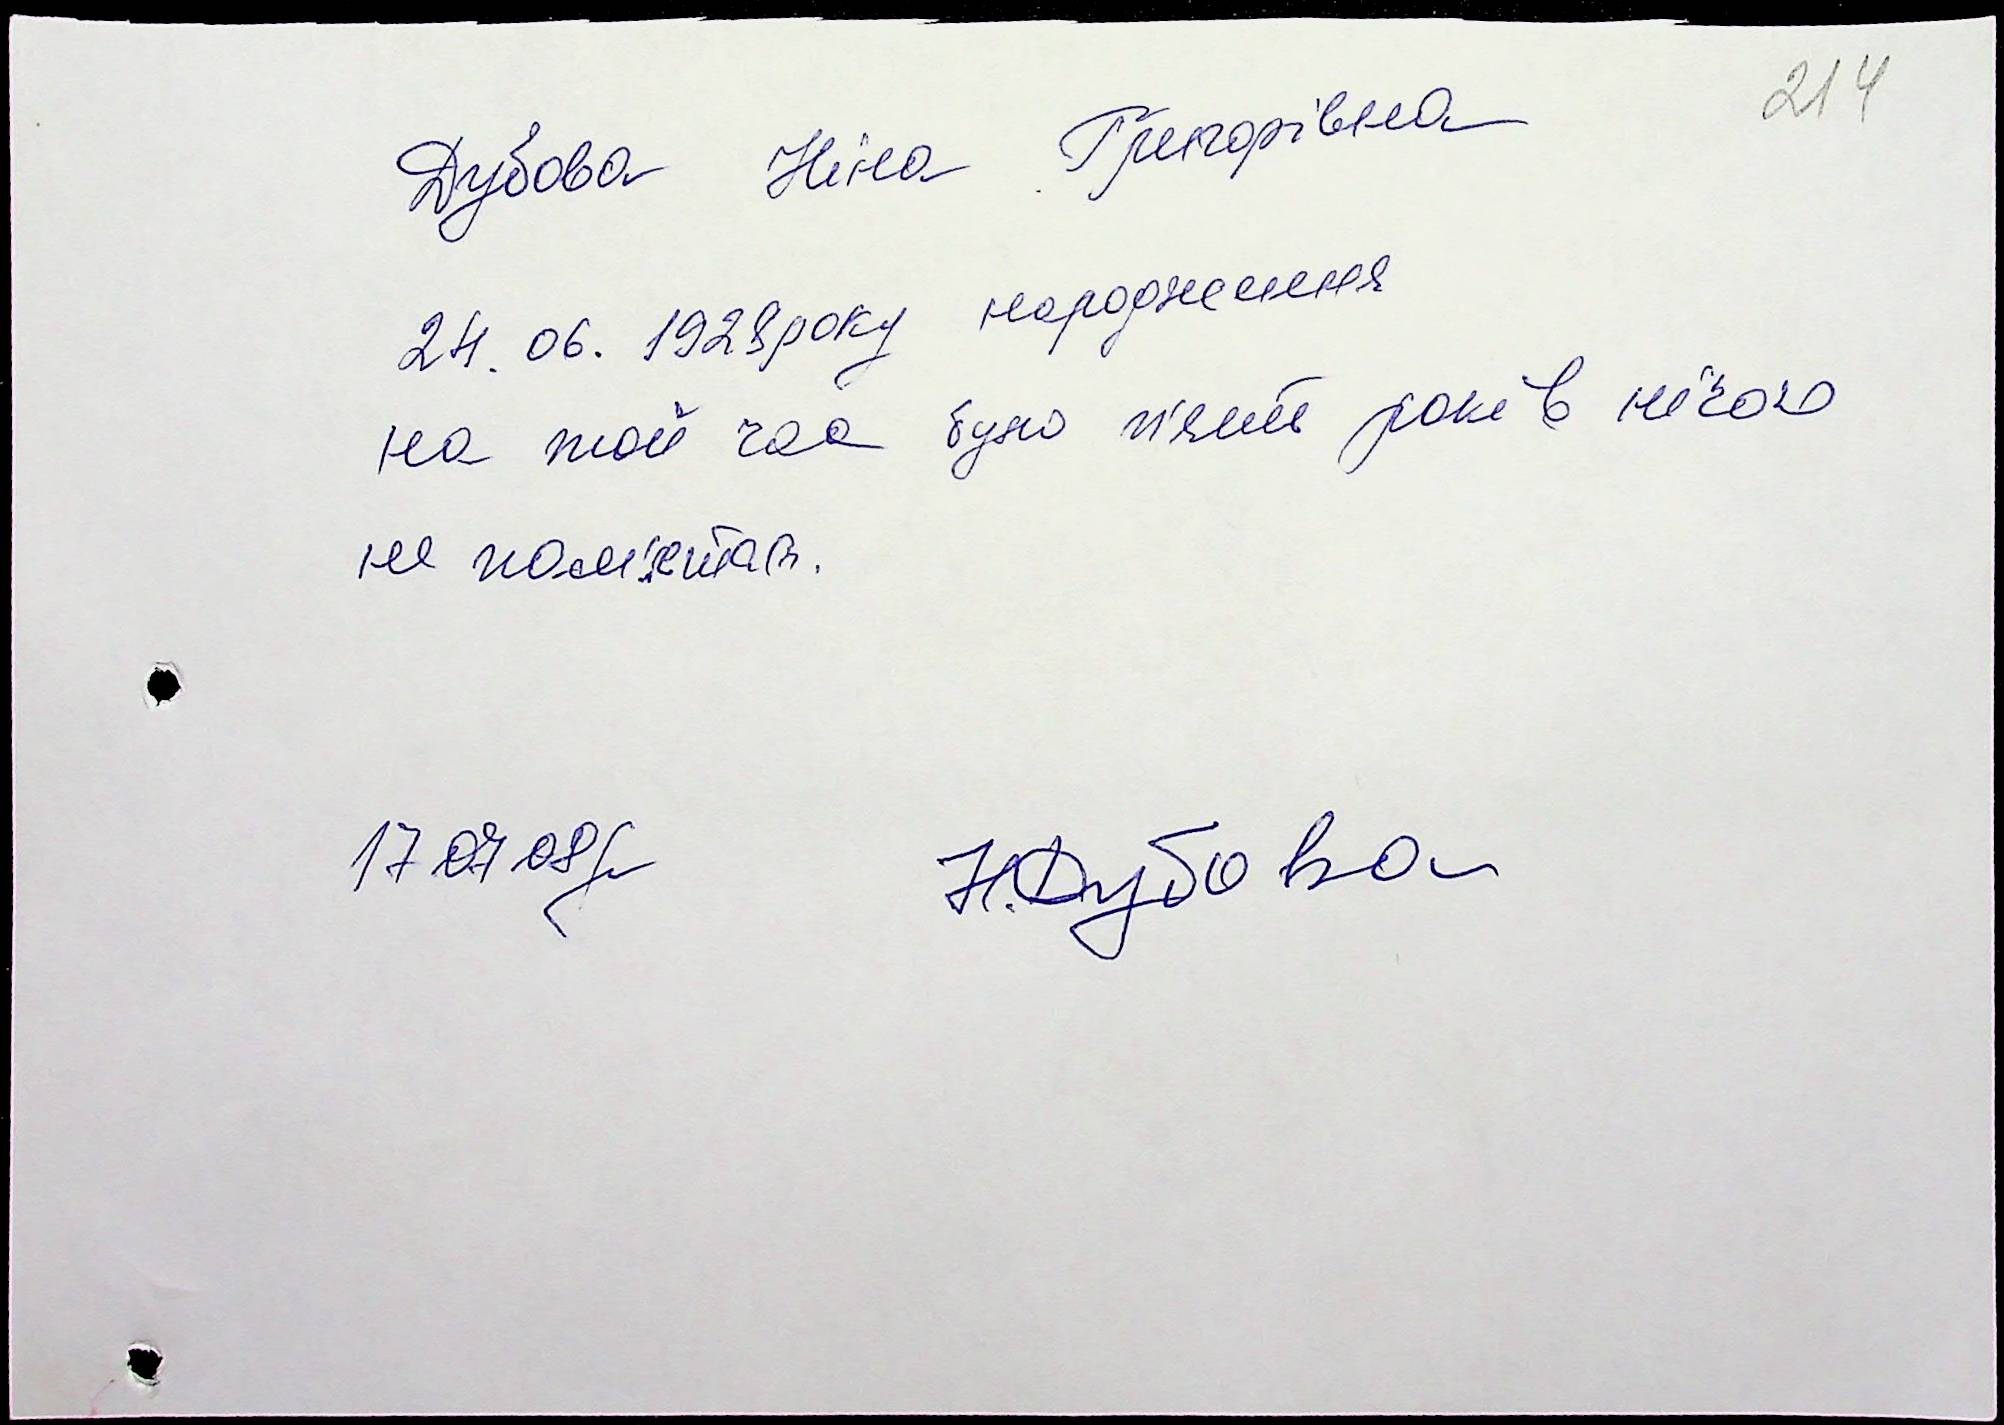 214
Дубова Ніна Григорівна
24. 06. 1928 року народження
на той час було п'ять років нічого
не пам'ятаю.
17 07 08р
Н. Дубова